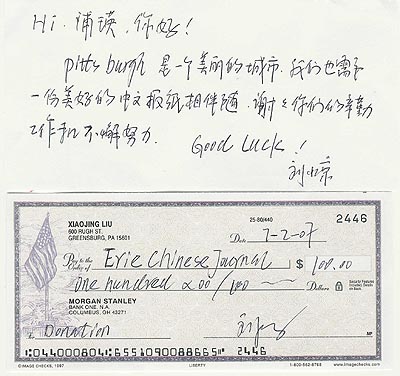 Hi. 浦瑛, 你好!
Pittsburgh 是一个美丽的城市. 我们也需要
一份美好的中文报纸相伴随. 谢谢你们的辛勤
工作和不懈努力.
Good Luck!
刘小京
XIAOJING LIU
600 RUGH ST.
GREENSBURG, PA 15601
25-80/440
2446
Date 7-2-07
Pay to the Order of Erie Chinese Journal $ 100.00
One hundred & 00/100 Dollars
MORGAN STANLEY
BANK ONE, N.A.
COLUMBUS, OH 43271
Donation
MP
⑆044000804⑆6551090088665⑈ 2446
© IMAGE CHECKS, 1997
LIBERTY
1-800-562-8768
www.imagechecks.com